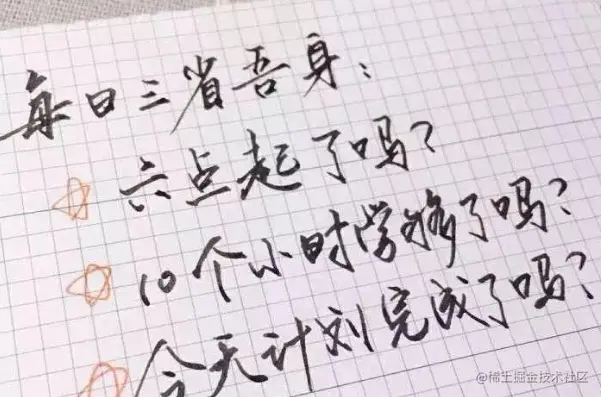 每日三省吾身:
六点起了吗?
10个小时学够了吗?
今天计划完成了吗?
@稀土掘金技术社区